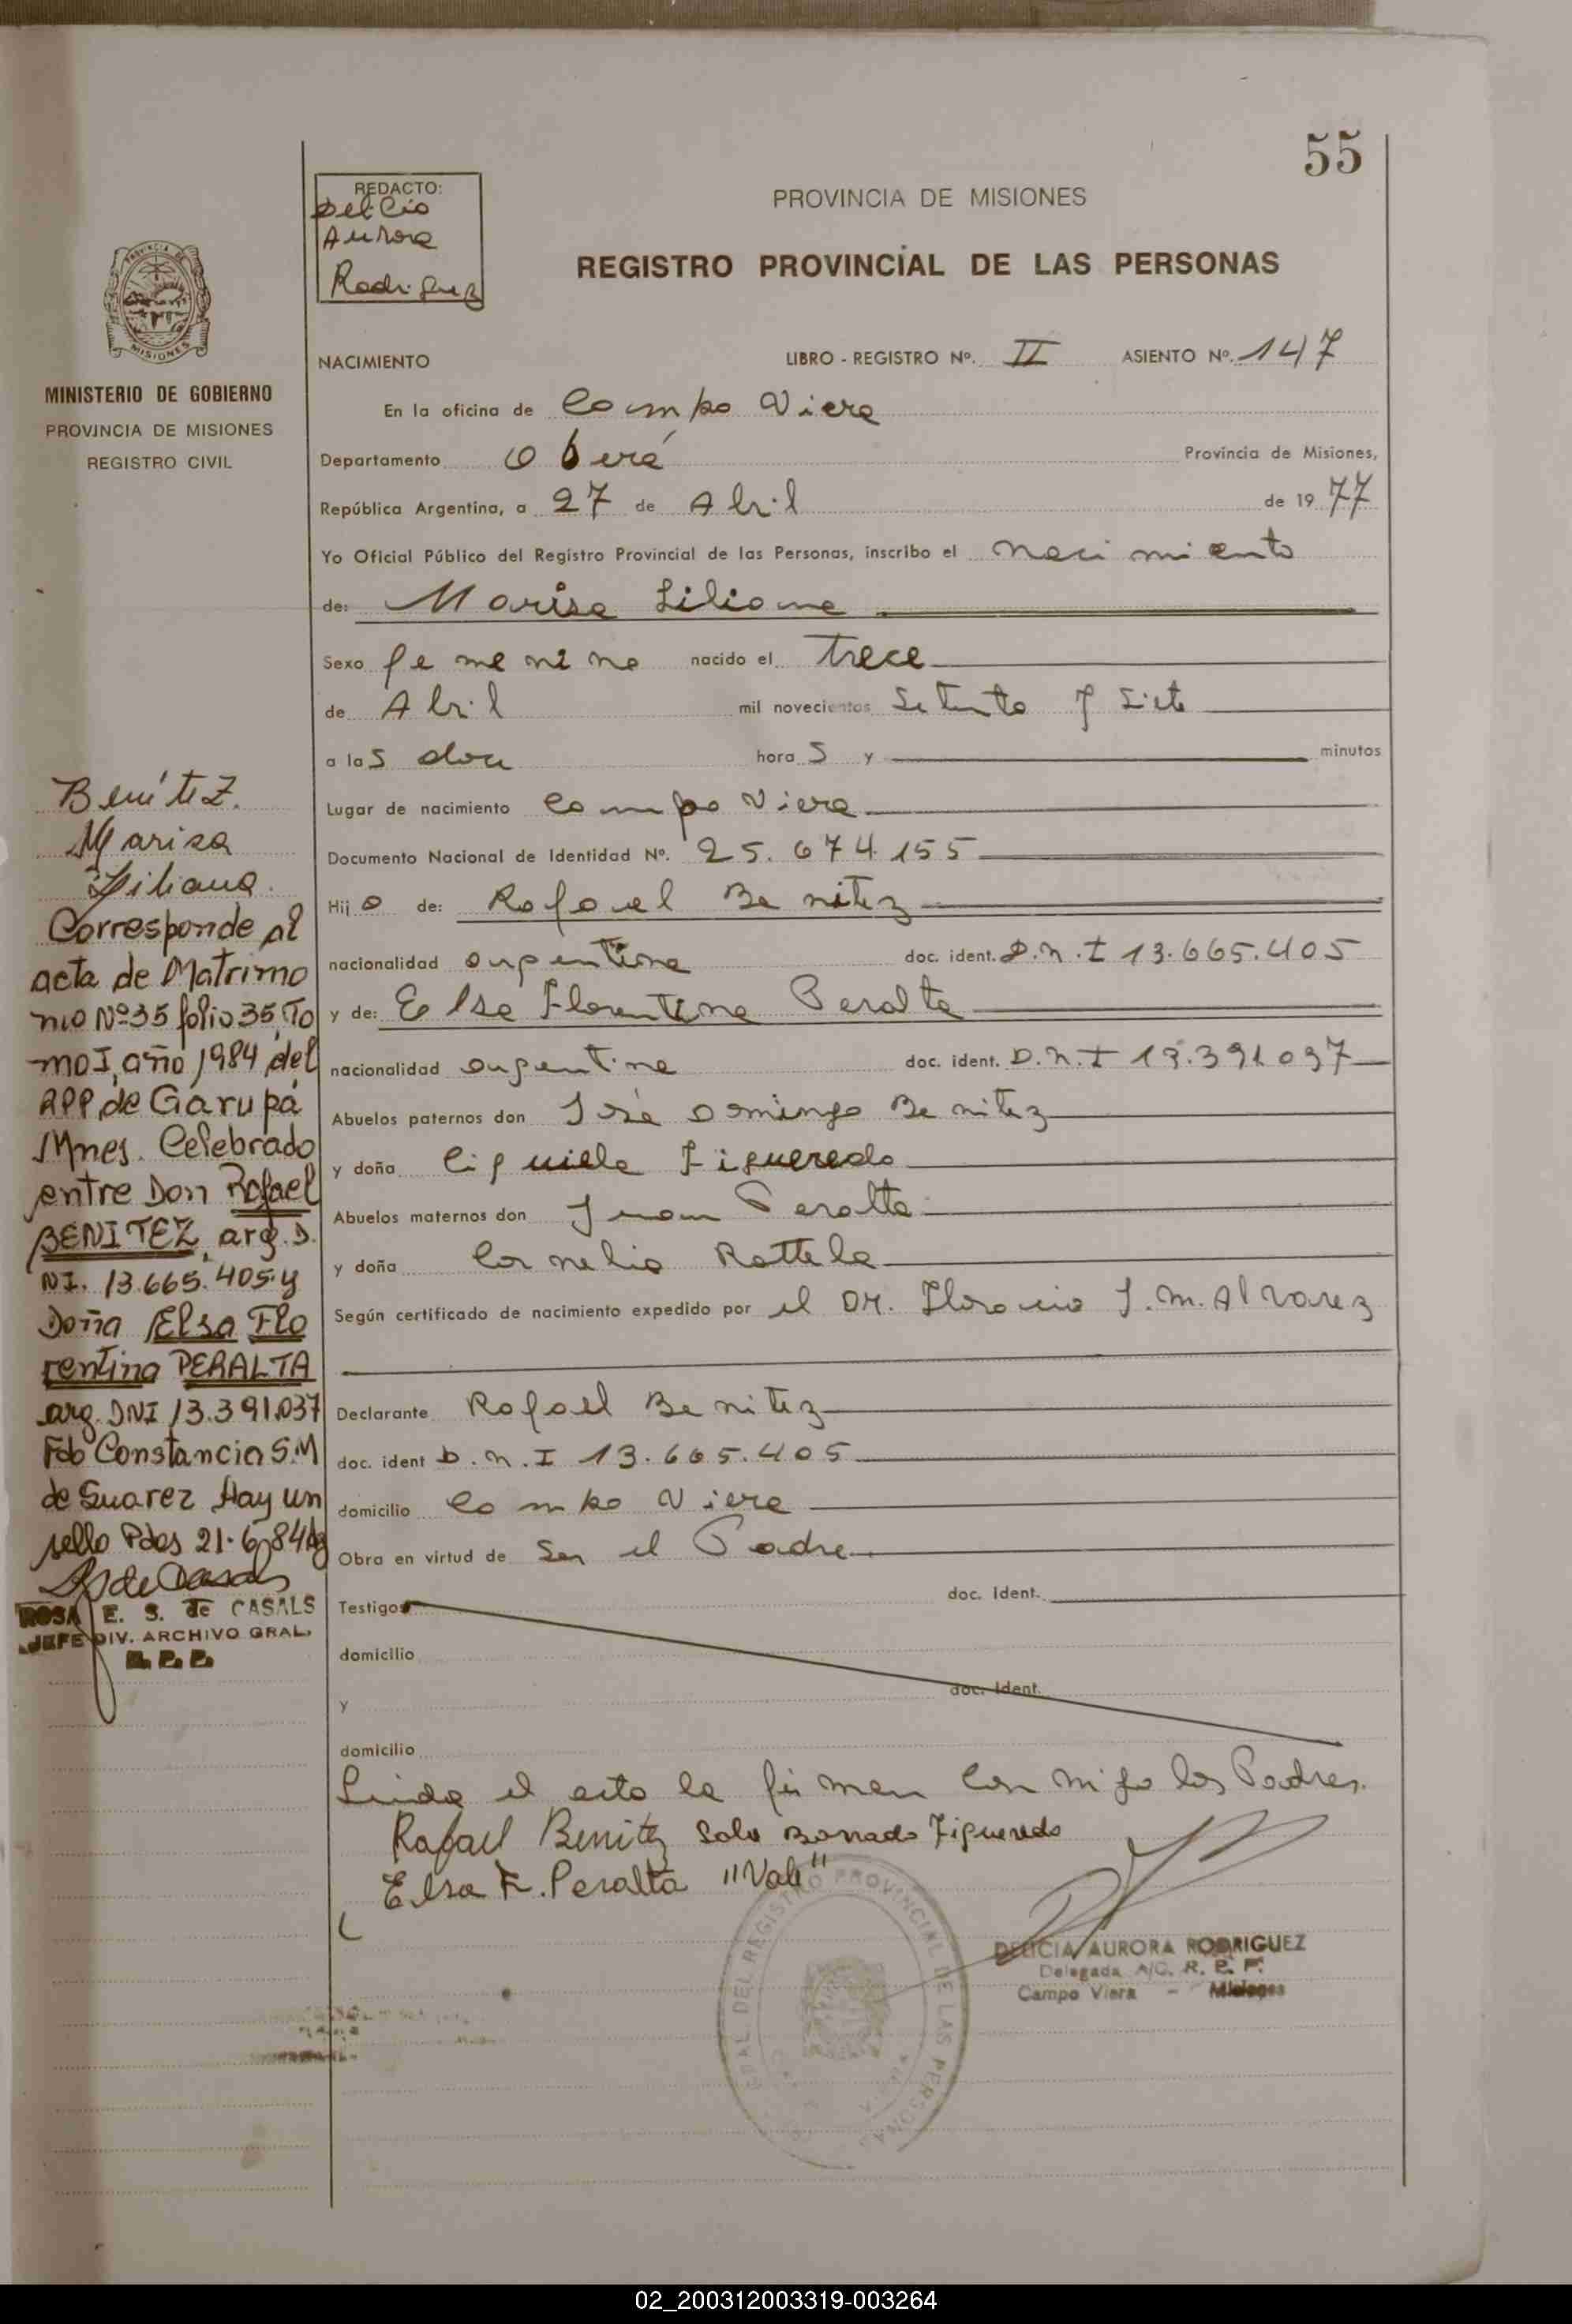 55
REDACTO:
Delicia
Aurora
Rodriguez
PROVINCIA DE MISIONES
REGISTRO PROVINCIAL DE LAS PERSONAS
MINISTERIO DE GOBIERNO
PROVINCIA DE MISIONES
REGISTRO CIVIL
NACIMIENTO LIBRO - REGISTRO Nº. II ASIENTO Nº. 147
En la oficina de Campo Viera
Departamento Oberá Provincia de Misiones,
República Argentina, a 27 de Abril de 1977
Yo Oficial Público del Registro Provincial de las Personas, inscribo el nacimiento
de: Marisa Liliana
Sexo femenino nacido el trece
de Abril mil novecientos Setenta y Siete
a las doce horas y minutos
Lugar de nacimiento Campo Viera
Documento Nacional de Identidad Nº. 25.674.155
Hija de: Rafael Benitez
nacionalidad argentina doc. ident. D.N.I 13.665.405
y de: Elsa Florentina Peralta
nacionalidad argentina doc. ident. D.N.I 13.391.037
Abuelos paternos don José Domingo Benitez
y doña Figueredo
Abuelos maternos don Juan Peralta
y doña Cornelia Rottela
Según certificado de nacimiento expedido por el Dr. Horacio J. M. Alvarez
Declarante Rafael Benitez
doc. ident D.N.I 13.665.405
domicilio Campo Viera
Obra en virtud de Ser el Padre
Testigos doc. Ident.
domicilio
y doc. Ident.
domicilio
Leida el acta la firman conmigo los Padres.
Rafael Benitez Sobre Borrado Figueredo
Elsa F. Peralta "Vale"
DELICIA AURORA RODRIGUEZ
Delegada A/C. R. P. P.
Campo Viera - Misiones
GRAL. DEL REGISTRO PROVINCIAL DE LAS PERSONAS
Benítez.
Marisa
Liliana.
Corresponde al
acta de Matrimo
nio Nº35 folio 35, To
mo I, año 1984 del
RPP de Garupá
Mnes. Celebrado
entre Don Rafael
BENITEZ, arg. D.
NI. 13.665.405 y
Doña Elsa Flo
rentina PERALTA
arg. DNI 13.391.037
Fdo Constancia S.M
de Suarez Hay un
sello Pdas 21.6.84
ROSA E. S. de CASALS
JEFE DIV. ARCHIVO GRAL.
R. P. P.
02_200312003319-003264